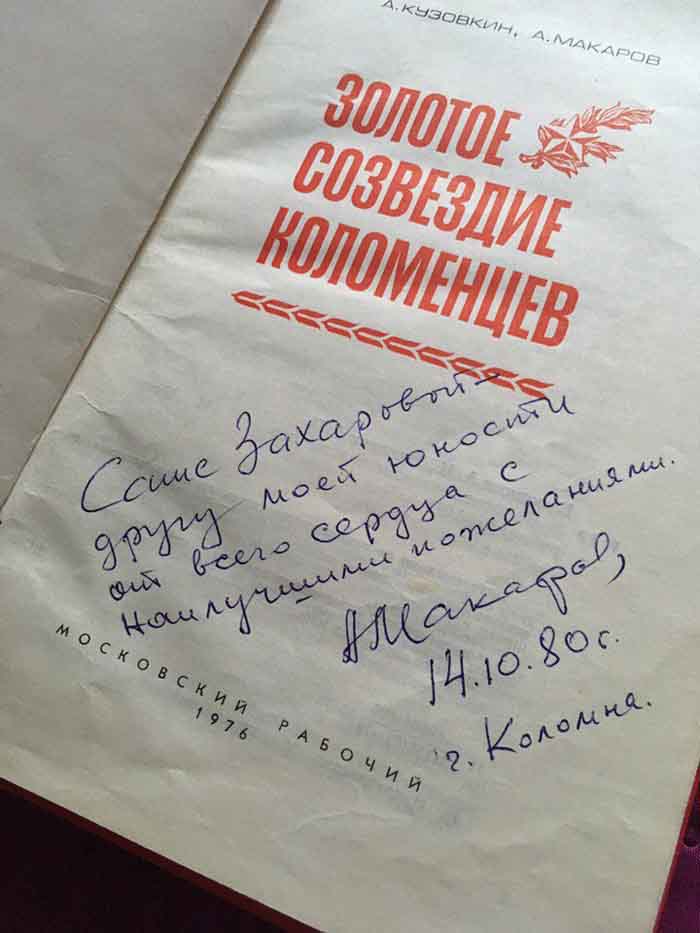 А. КУЗОВКИН, А. МАКАРОВ
ЗОЛОТОЕ
СОЗВЕЗДИЕ
КОЛОМЕНЦЕВ
Саше Захаровой –
другу моей юности
от всего сердца с
наилучшими пожеланиями.
АМакаров,
14.10.80г.
г. Коломна.
МОСКОВСКИЙ РАБОЧИЙ
1976